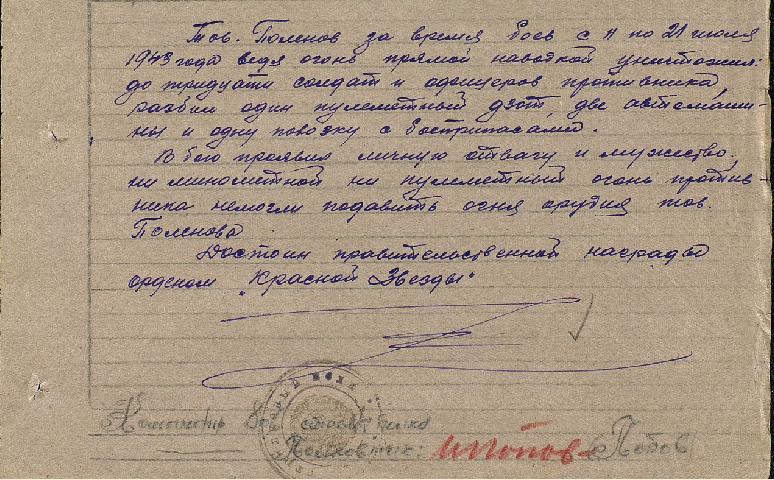 Тов. Поленов за время боев с 11 по 21 июля
1943 года ведя огонь прямой наводкой уничтожил:
до тридцати солдат и офицеров противника,
разбил один пулеметный дзот, две автомаши-
ны и одну повозку с боеприпасами.
В бою проявил личную отвагу и мужество.
ни минометной ни пулеметный огонь против-
ника немогли подавить огня орудия тов.
Поленова
Достоин правительственной награды
орденом "Красной Звезды"
Командир
Полковник: Попов